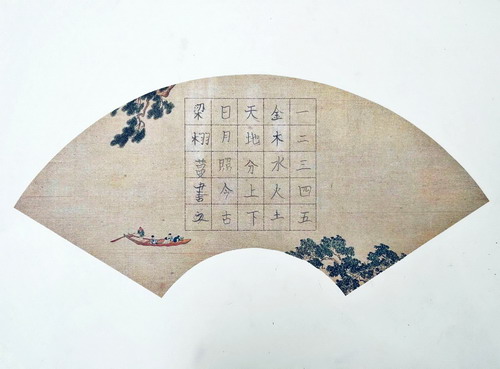 一二三四五
金木水火土
天地分上下
日月照今古
梁栩蔓書之